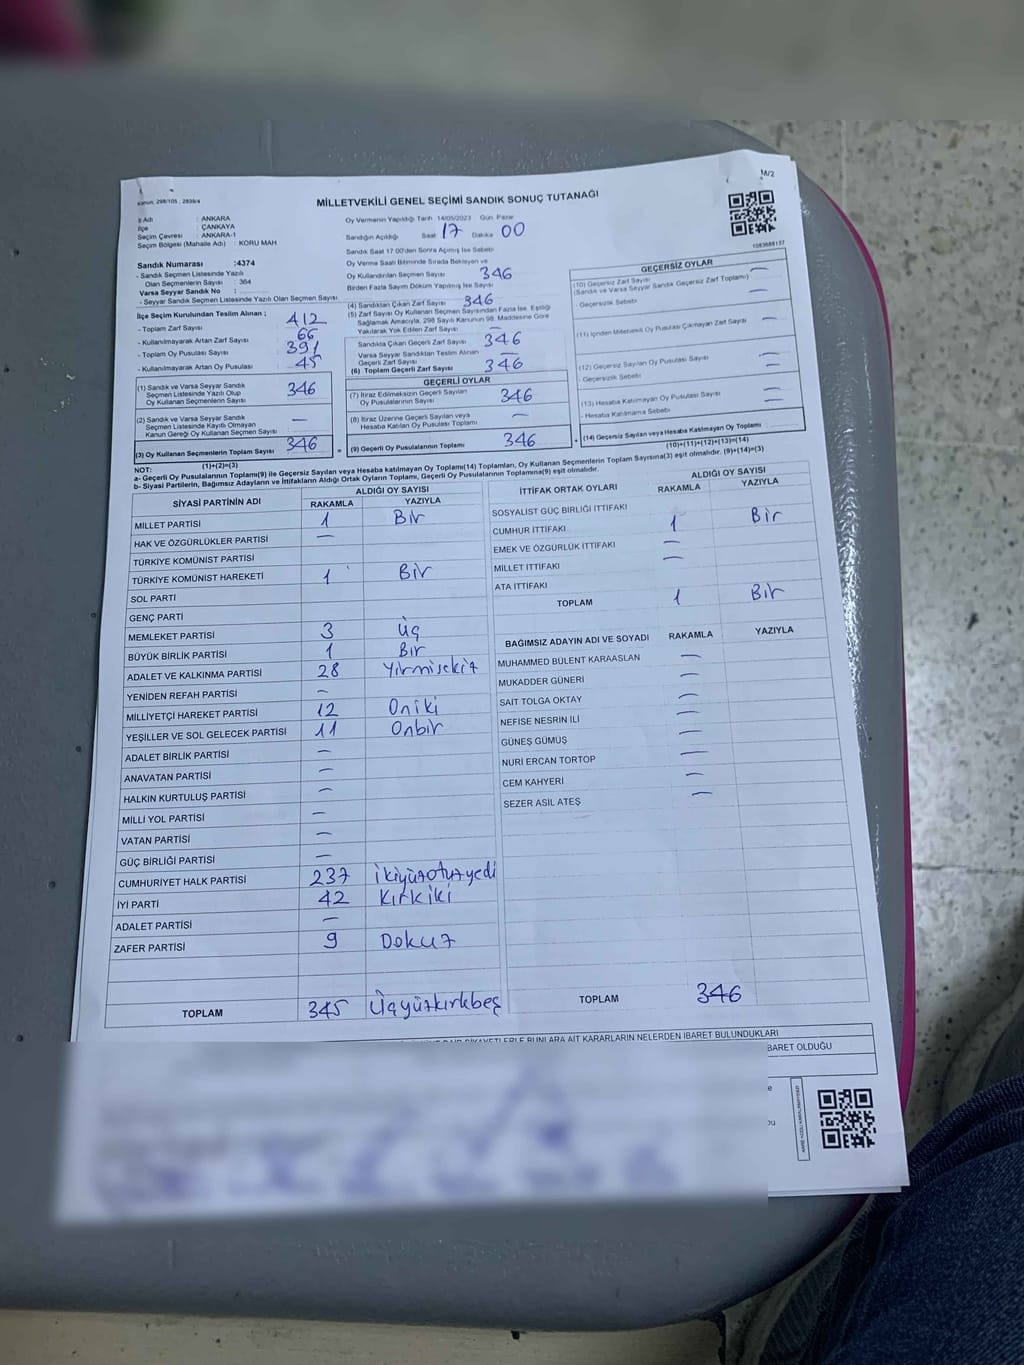 kanun: 298/105 , 2839/4
M/2
MİLLETVEKİLİ GENEL SEÇİMİ SANDIK SONUÇ TUTANAĞI
İl Adı : ANKARA
İlçe : ÇANKAYA
Seçim Çevresi : ANKARA-1
Seçim Bölgesi (Mahalle Adı) : KORU MAH.
Sandık Numarası :4374
- Sandık Seçmen Listesinde Yazılı
Olan Seçmenlerin Sayısı : 364
Varsa Seyyar Sandık No :
- Seyyar Sandık Seçmen Listesinde Yazılı Olan Seçmen Sayısı
İlçe Seçim Kurulundan Teslim Alınan ;
- Toplam Zarf Sayısı 412
- Kullanılmayarak Artan Zarf Sayısı 66
- Toplam Oy Pusulası Sayısı 391
- Kullanılmayarak Artan Oy Pusulası 45
(1) Sandık ve Varsa Seyyar Sandık
Seçmen Listesinde Yazılı Olup
Oy Kullanan Seçmenlerin Sayısı 346
(2) Sandık ve Varsa Seyyar Sandık
Seçmen Listesinde Kayıtlı Olmayan
Kanun Gereği Oy Kullanan Seçmen Sayısı —
(3) Oy Kullanan Seçmenlerin Toplam Sayısı 346
(1)+(2)=(3)
Oy Vermenin Yapıldığı Tarih 14/05/2023 Gün Pazar
Sandığın Açıldığı Saat 17 Dakika 00
Sandık Saat 17.00'den Sonra Açılmış İse Sebebi
Oy Verme Saati Bitiminde Sırada Bekleyen ve
Oy Kullandırılan Seçmen Sayısı 346
Birden Fazla Sayım Döküm Yapılmış İse Sayısı
(4) Sandıktan Çıkan Zarf Sayısı 346
(5) Zarf Sayısı Oy Kullanan Seçmen Sayısından Fazla İse, Eşitliği
Sağlamak Amacıyla, 298 Sayılı Kanunun 98. Maddesine Göre
Yakılarak Yok Edilen Zarf Sayısı —
Sandıkta Çıkan Geçerli Zarf Sayısı 346
Varsa Seyyar Sandıktan Teslim Alınan
Geçerli Zarf Sayısı —
(6) Toplam Geçerli Zarf Sayısı 346
GEÇERLİ OYLAR
(7) İtiraz Edilmeksizin Geçerli Sayılan
Oy Pusulalarının Sayısı 346
(8) İtiraz Üzerine Geçerli Sayılan veya
Hesaba Katılan Oy Pusulası Toplamı —
= (9) Geçerli Oy Pusulalarının Toplamı 346
1083688137
GEÇERSİZ OYLAR
(10) Geçersiz Zarf Sayısı —
(Sandık ve Varsa Seyyar Sandık Geçersiz Zarf Toplamı)
- Geçersizlik Sebebi —
(11) İçinden Milletvekili Oy Pusulası Çıkmayan Zarf Sayısı —
(12) Geçersiz Sayılan Oy Pusulası Sayısı —
- Geçersizlik Sebebi —
(13) Hesaba Katılmayan Oy Pusulası Sayısı —
- Hesaba Katılmama Sebebi —
+ (14) Geçersiz Sayılan veya Hesaba Katılmayan Oy Toplamı
(10)+(11)+(12)+(13)=(14)
NOT:
a- Geçerli Oy Pusulalarının Toplamı(9) ile Geçersiz Sayılan veya Hesaba katılmayan Oy Toplamı(14) Toplamları, Oy Kullanan Seçmenlerin Toplam Sayısına(3) eşit olmalıdır. (9)+(14)=(3)
b- Siyasi Partilerin, Bağımsız Adayların ve İttifakların Aldığı Ortak Oyların Toplamı, Geçerli Oy Pusulalarının Toplamına(9) eşit olmalıdır.
SİYASİ PARTİNİN ADI
ALDIĞI OY SAYISI
RAKAMLA YAZIYLA
MİLLET PARTİSİ 1 Bir
HAK VE ÖZGÜRLÜKLER PARTİSİ —
TÜRKİYE KOMÜNİST PARTİSİ
TÜRKİYE KOMÜNİST HAREKETİ 1 Bir
SOL PARTİ
GENÇ PARTİ
MEMLEKET PARTİSİ 3 Üç
BÜYÜK BİRLİK PARTİSİ 1 Bir
ADALET VE KALKINMA PARTİSİ 28 Yirmisekiz
YENİDEN REFAH PARTİSİ —
MİLLİYETÇİ HAREKET PARTİSİ 12 Oniki
YEŞİLLER VE SOL GELECEK PARTİSİ 11 Onbir
ADALET BİRLİK PARTİSİ —
ANAVATAN PARTİSİ —
HALKIN KURTULUŞ PARTİSİ —
MİLLİ YOL PARTİSİ —
VATAN PARTİSİ —
GÜÇ BİRLİĞİ PARTİSİ —
CUMHURİYET HALK PARTİSİ 237 İkiyüzotuzyedi
İYİ PARTİ 42 Kırkiki
ADALET PARTİSİ —
ZAFER PARTİSİ 9 Dokuz
TOPLAM 345 Üçyüzkırkbeş
İTTİFAK ORTAK OYLARI
ALDIĞI OY SAYISI
RAKAMLA YAZIYLA
SOSYALİST GÜÇ BİRLİĞİ İTTİFAKI
CUMHUR İTTİFAKI 1 Bir
EMEK VE ÖZGÜRLÜK İTTİFAKI —
MİLLET İTTİFAKI —
ATA İTTİFAKI
TOPLAM 1 Bir
BAĞIMSIZ ADAYIN ADI VE SOYADI RAKAMLA YAZIYLA
MUHAMMED BÜLENT KARAASLAN —
MUKADDER GÜNERİ —
SAİT TOLGA OKTAY —
NEFİSE NESRİN İLİ —
GÜNEŞ GÜMÜŞ —
NURİ ERCAN TORTOP —
CEM KAHYERİ —
SEZER ASİL ATEŞ —
TOPLAM 346
BUNLARA AİT KARARLARIN NELERDEN İBARET BULUNDUKLARI
OLDUĞU